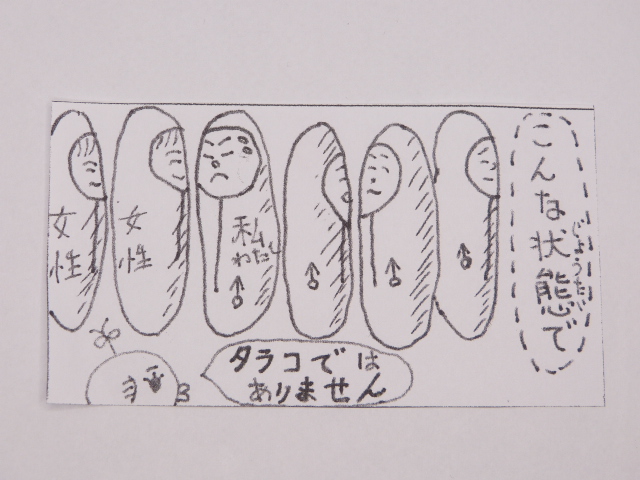 こんな状態で
じょうたい
私
わたし
女性
女性
タラコでは
ありません